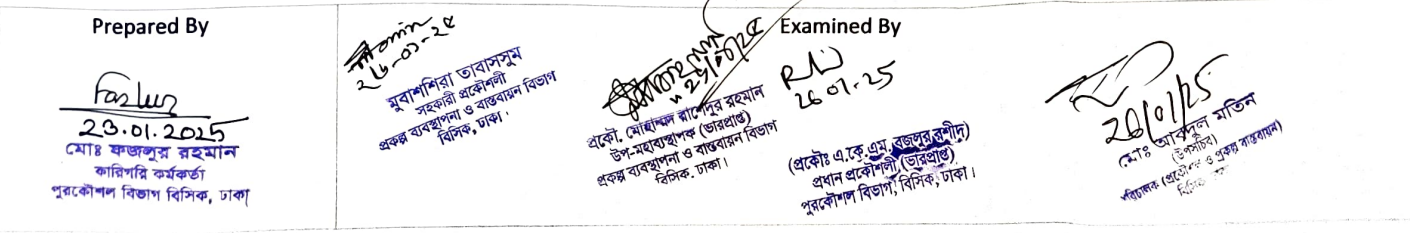 Prepared By
Fazlur
23.01.2025
মোঃ ফজলুর রহমান
কারিগরি কর্মকর্তা
পুরকৌশল বিভাগ বিসিক, ঢাকা
Examined By
২৬-০১-২৫
মুবাশশিরা তাবাসসুম
সহকারী প্রকৌশলী
প্রকল্প ব্যবস্থাপনা ও বাস্তবায়ন বিভাগ
বিসিক, ঢাকা।
প্রকৌ. মোহাম্মদ রাশেদুর রহমান
উপ-মহাব্যবস্থাপক (ভারপ্রাপ্ত)
প্রকল্প ব্যবস্থাপনা ও বাস্তবায়ন বিভাগ
বিসিক, ঢাকা।
26.01.25
(প্রকৌঃ এ.কে.এম. বজলুর রশীদ)
প্রধান প্রকৌশলী (ভারপ্রাপ্ত)
পুরকৌশল বিভাগ, বিসিক, ঢাকা।
26/01/25
মোঃ আবদুল মতিন
(উপসচিব)
পরিচালক (প্রকৌশল ও প্রকল্প বাস্তবায়ন)